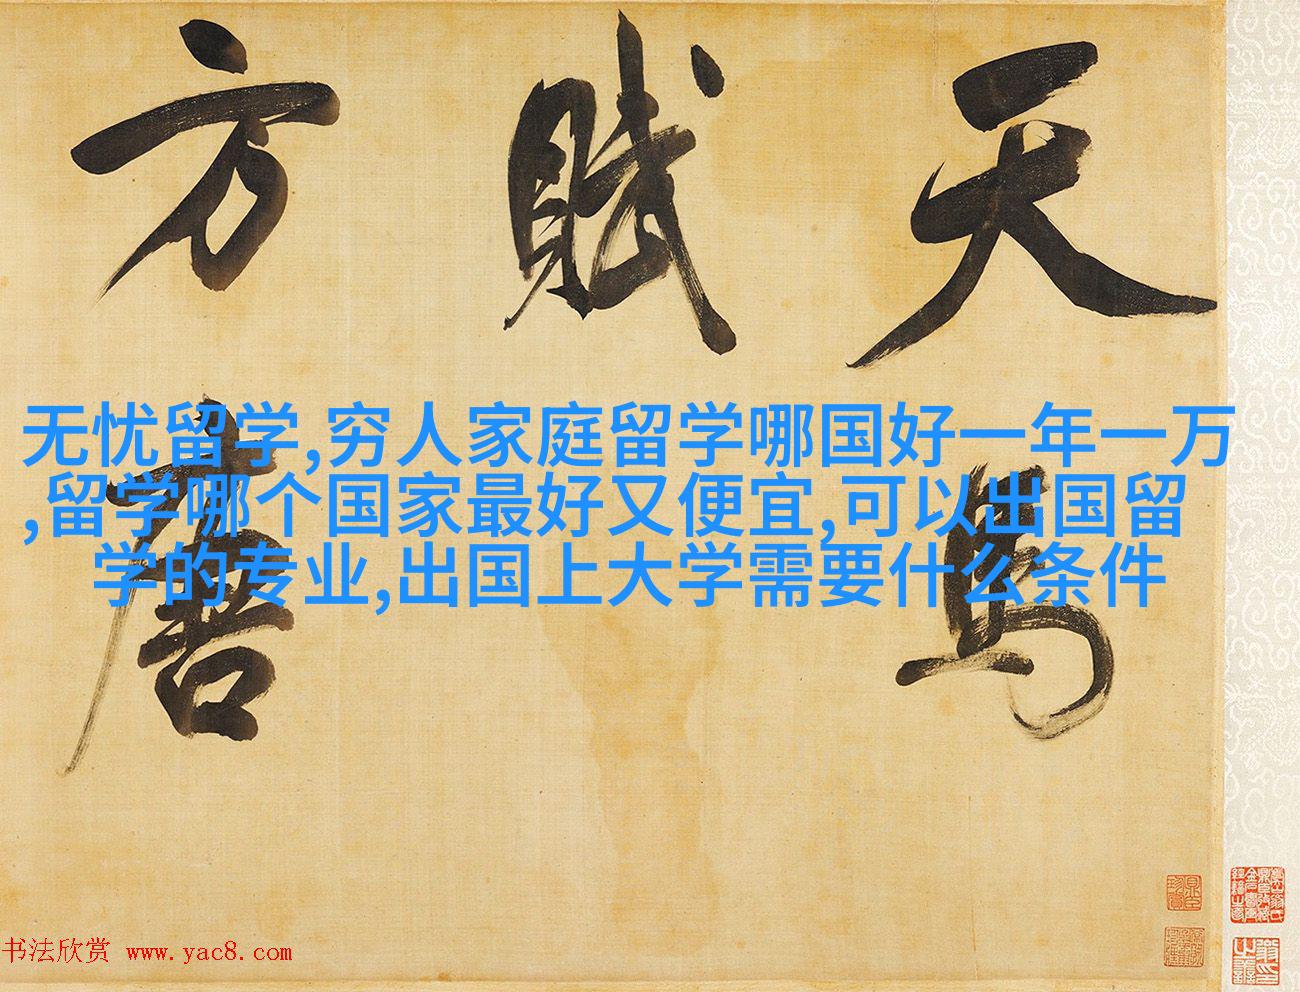 天馬
賦
方唐
无忧留学,穷人家庭留学哪国好一年一万
,留学哪个国家最好又便宜,可以出国留
学的专业,出国上大学需要什么条件
书法欣赏 www.yac8.com